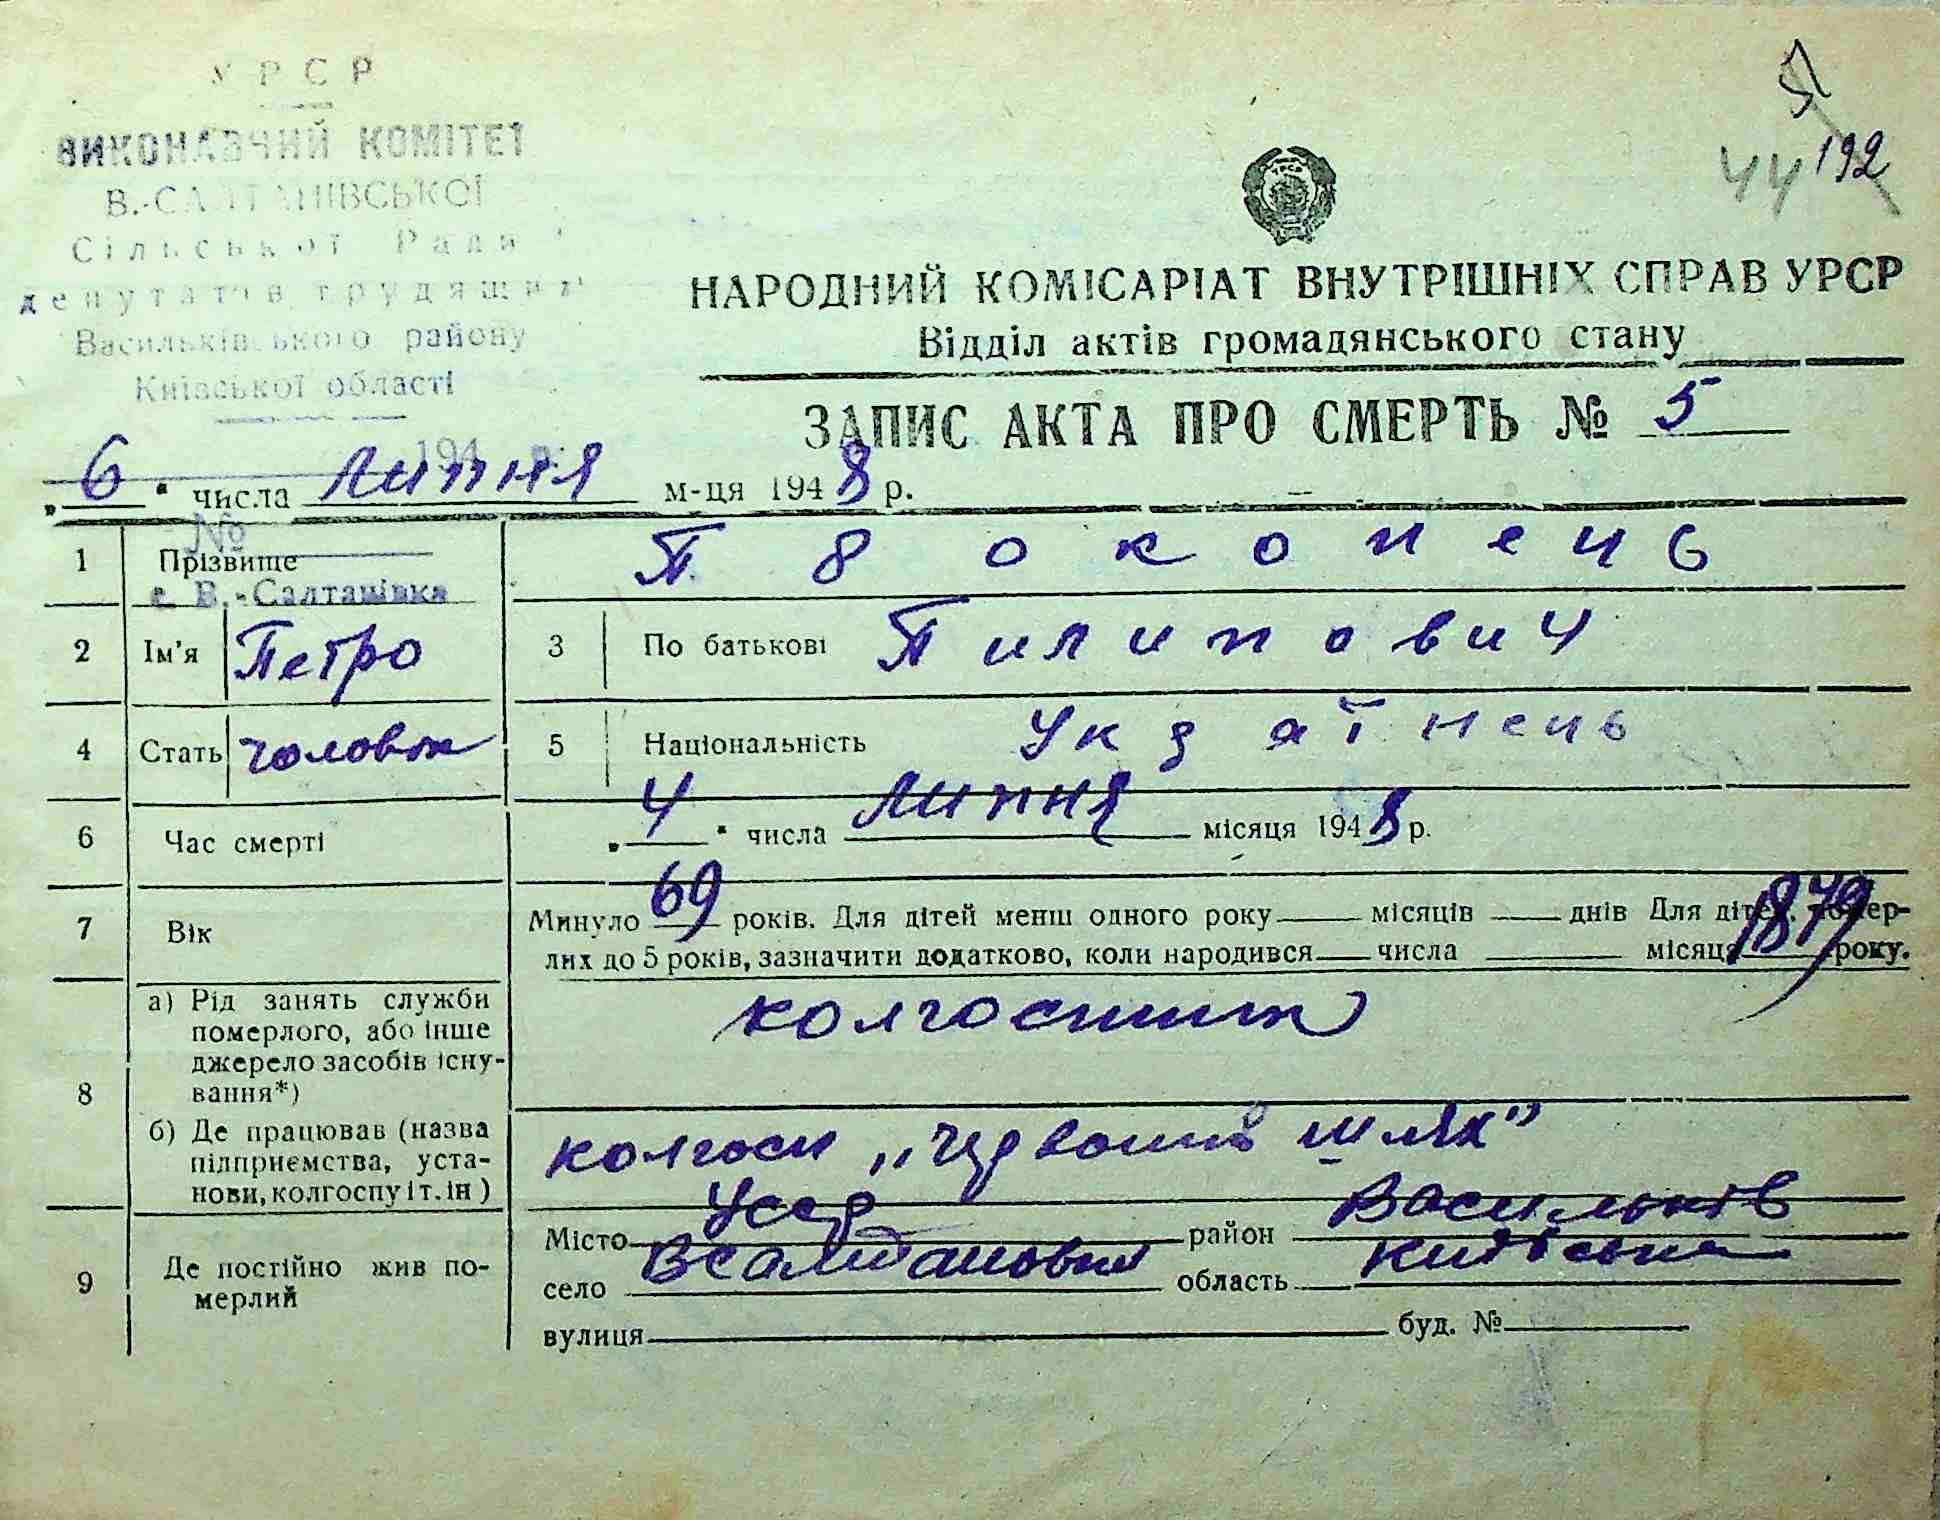 УРСР
ВИКОНАВЧИЙ КОМІТЕТ
В.-САЛТАНІВСЬКОЇ
Сільської Ради
депутатів трудящих
Васильківського району
Київської області
194 р.
51
44 192
УРСР
НАРОДНИЙ КОМІСАРІАТ ВНУТРІШНІХ СПРАВ УРСР
Відділ актів громадянського стану
ЗАПИС АКТА ПРО СМЕРТЬ № 5
„6" числа липня м-ця 1948 р.
№
1 Прізвище
с. В.-Салтанівка
2 Ім'я Петро 3 По батькові Пилипович
4 Стать чоловік 5 Національність Українець
6 Час смерті „4" числа липня місяця 1948 р.
7 Вік Минуло 69 років. Для дітей менш одного року місяців днів Для дітей, помер-
лих до 5 років, зазначити додатково, коли народився числа місяця 1879 року.
8 а) Рід занять служби
померлого, або інше
джерело засобів існу-
вання*)
колгоспник
б) Де працював (назва
підприємства, уста-
нови, колгоспу і т. ін)
колгосп „Червоний шлях"
9 Де постійно жив по-
мерлий
Місто УССР район Васильків
село ВСалтановка область Київська
вулиця буд. №